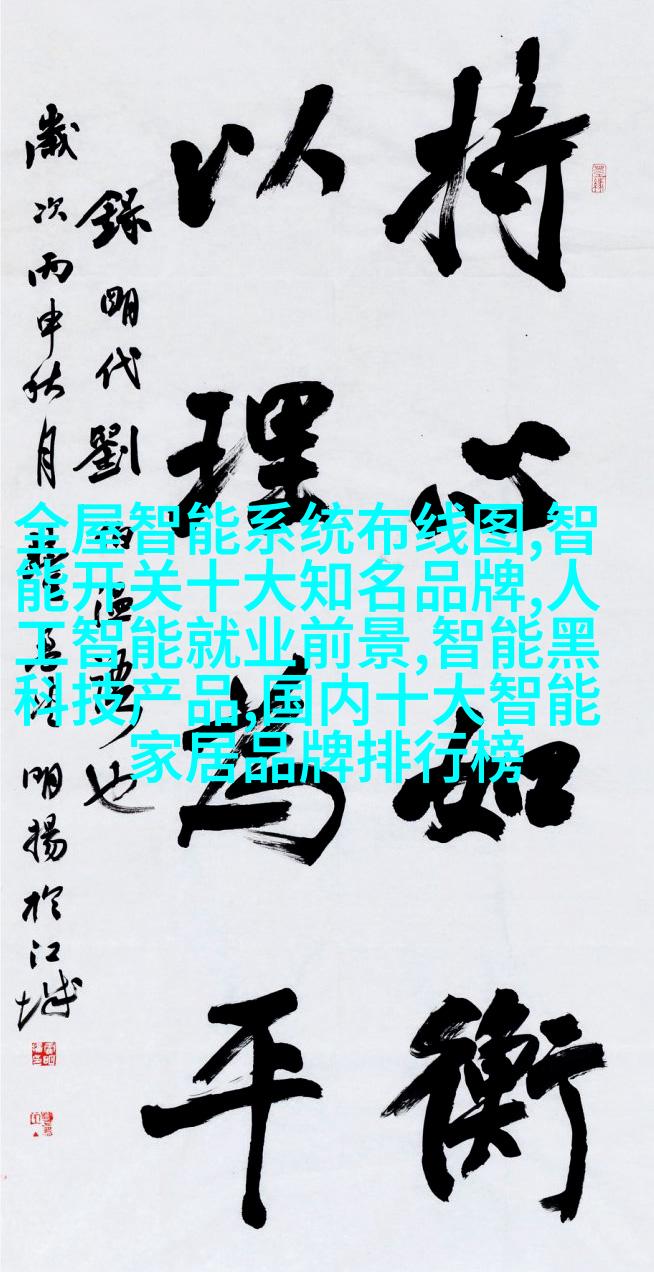 持心如衡
以理為平
錄明代劉伯温語也
歲次丙申秋月
明揚於江城
全屋智能系统布线图,智
能开关十大知名品牌,人
工智能就业前景,智能黑
科技产品,国内十大智能
家居品牌排行榜